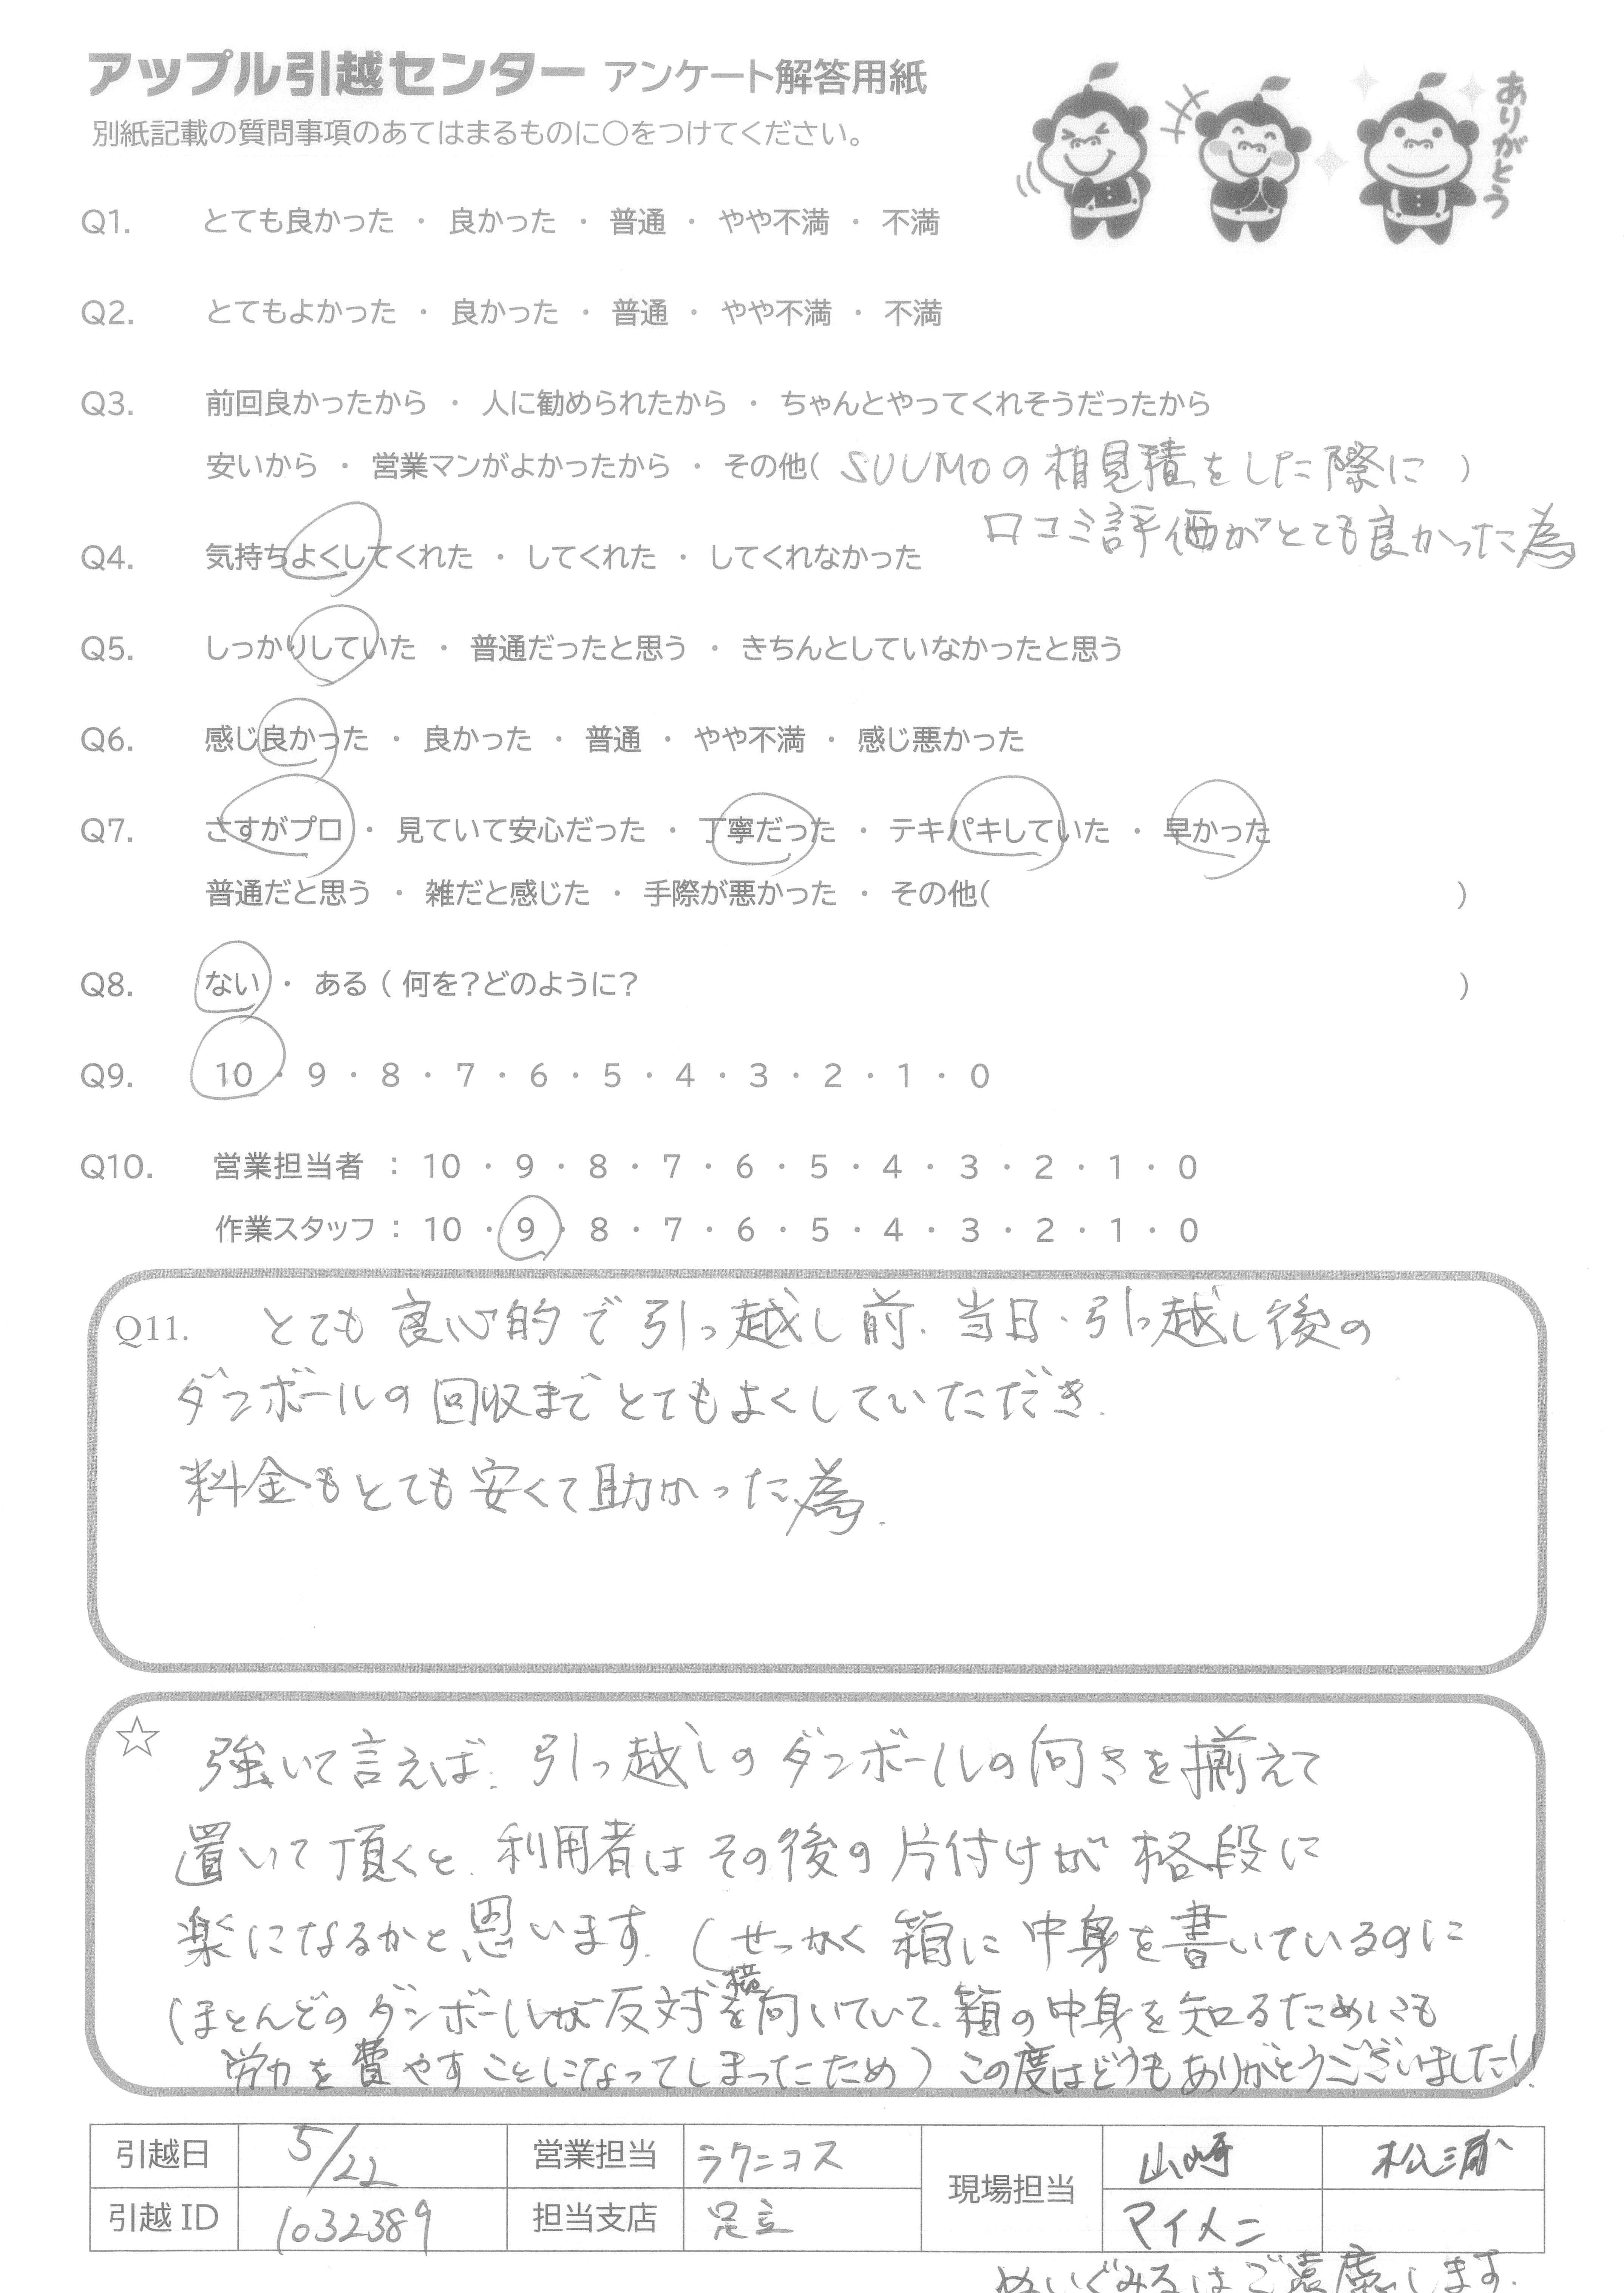 アップル引越センター アンケート解答用紙
別紙記載の質問事項のあてはまるものに〇をつけてください。
ありがとう
Q1. とても良かった ・ 良かった ・ 普通 ・ やや不満 ・ 不満
Q2. とてもよかった ・ 良かった ・ 普通 ・ やや不満 ・ 不満
Q3. 前回良かったから ・ 人に勧められたから ・ ちゃんとやってくれそうだったから
安いから ・ 営業マンがよかったから ・ その他( SUUMOの相見積をした際に )
口コミ評価がとても良かった為
Q4. 気持ちよくしてくれた ・ してくれた ・ してくれなかった
Q5. しっかりしていた ・ 普通だったと思う ・ きちんとしていなかったと思う
Q6. 感じ良かった ・ 良かった ・ 普通 ・ やや不満 ・ 感じ悪かった
Q7. さすがプロ ・ 見ていて安心だった ・ 丁寧だった ・ テキパキしていた ・ 早かった
普通だと思う ・ 雑だと感じた ・ 手際が悪かった ・ その他( )
Q8. ない ・ ある ( 何を？どのように？ )
Q9. 10 ・ 9 ・ 8 ・ 7 ・ 6 ・ 5 ・ 4 ・ 3 ・ 2 ・ 1 ・ 0
Q10. 営業担当者 : 10 ・ 9 ・ 8 ・ 7 ・ 6 ・ 5 ・ 4 ・ 3 ・ 2 ・ 1 ・ 0
作業スタッフ : 10 ・ 9 ・ 8 ・ 7 ・ 6 ・ 5 ・ 4 ・ 3 ・ 2 ・ 1 ・ 0
Q11. とても良心的で引っ越し前、当日・引っ越し後の
ダンボールの回収までとてもよくしていただき、
料金もとても安くて助かった為。
☆ 強いて言えば、引っ越しのダンボールの向きを揃えて
置いて頂くと、利用者はその後の片付けが格段に
楽になるかと思います。(せっかく箱に中身を書いているのに
横
ほとんどのダンボールが反対を向いていて、箱の中身を知るためにも
労力を費やすことになってしまったため) この度はどうもありがとうございました!!
引越日 5/22 営業担当 ラクニコス 現場担当 山崎 松浦
引越ID 1032389 担当支店 足立 マイメニ
ぬいぐるみはご遠慮します。